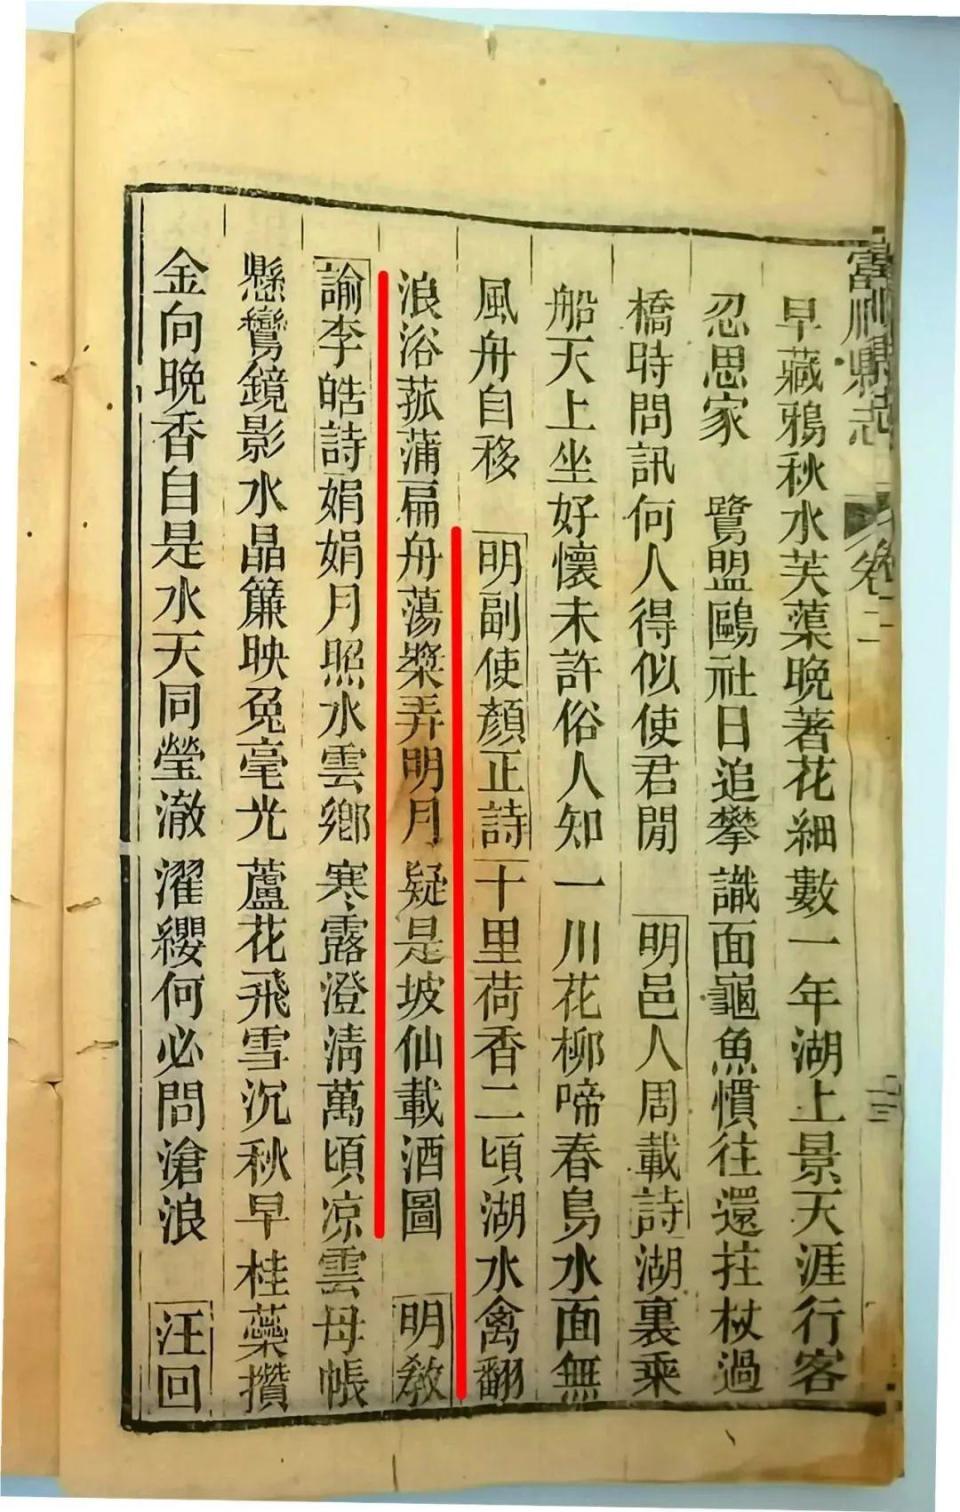 富順縣志
卷二
早藏鴉秋水芙蕖晚著花細數一年湖上景天涯行客
忍思家 鷺盟鷗社日追攀識面龜魚慣往還拄杖過
橋時問訊何人得似使君閒 明邑人周載詩 湖裏乘
船天上坐好懷未許俗人知一川花柳啼春鳥水面無
風舟自移 明副使顏正詩 十里荷香二頃湖水禽翻
浪浴菰蒲扁舟蕩槳弄明月疑是坡仙載酒圖 明教
諭李皓詩 娟娟月照水雲鄉寒露澄清萬頃凉雲母帳
懸鸞鏡影水晶簾映兔毫光蘆花飛雪沉秋早桂蘂攢
金向晚香自是水天同瑩澈濯纓何必問滄浪 汪回